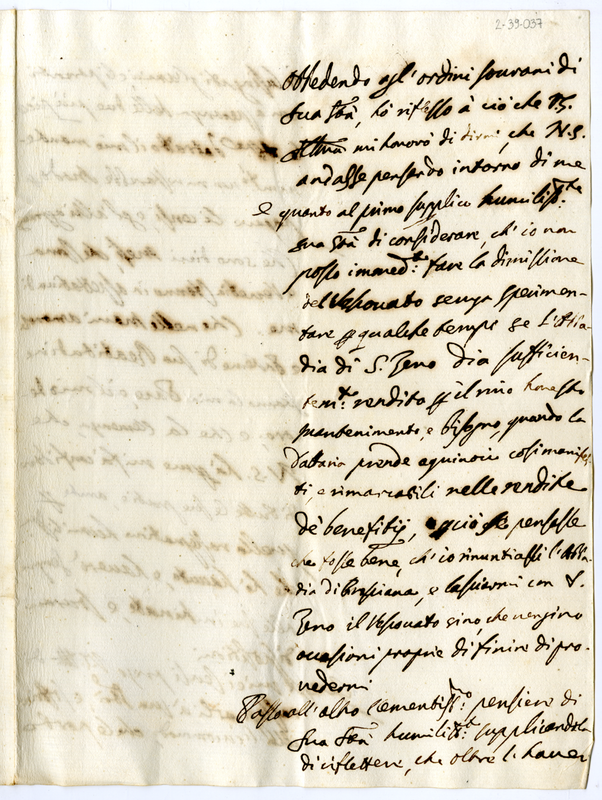 2-39-037
Obbedendo agl'ordini sourani di
sua Stà, hò riflesso à ciò che V.S.
Illma mi honorò di dirmi, che N.S.
andasse pensando intorno di me
E quanto al primo supplico humilisste
sua Stà di considerare, ch'io non
posso immedte fare la dimissione
del Vescouato senza sperimen-
tare p qualche tempo se l'Abba-
dia di S. Zeno dia sufficien-
temte rendita p il mio honesto
mantenimento, e bisogno, quando la
Dattaria prende equiuoci cosi manifes-
ti, e rimarcabili nelle rendite
de benefitij, e p ciò se pensasse
che fosse bene, ch'io rinuntiassi l'Abba-
dia di Bresciana, e lasciarmi con S.
Zeno il Vescouato sino, che uenghino
occasioni proprie di finire di pro-
uedermi
Passo all'altro clementissmo pensiero di
sua Stà humilisste supplicandola
di riflettere, che oltre l'hauer